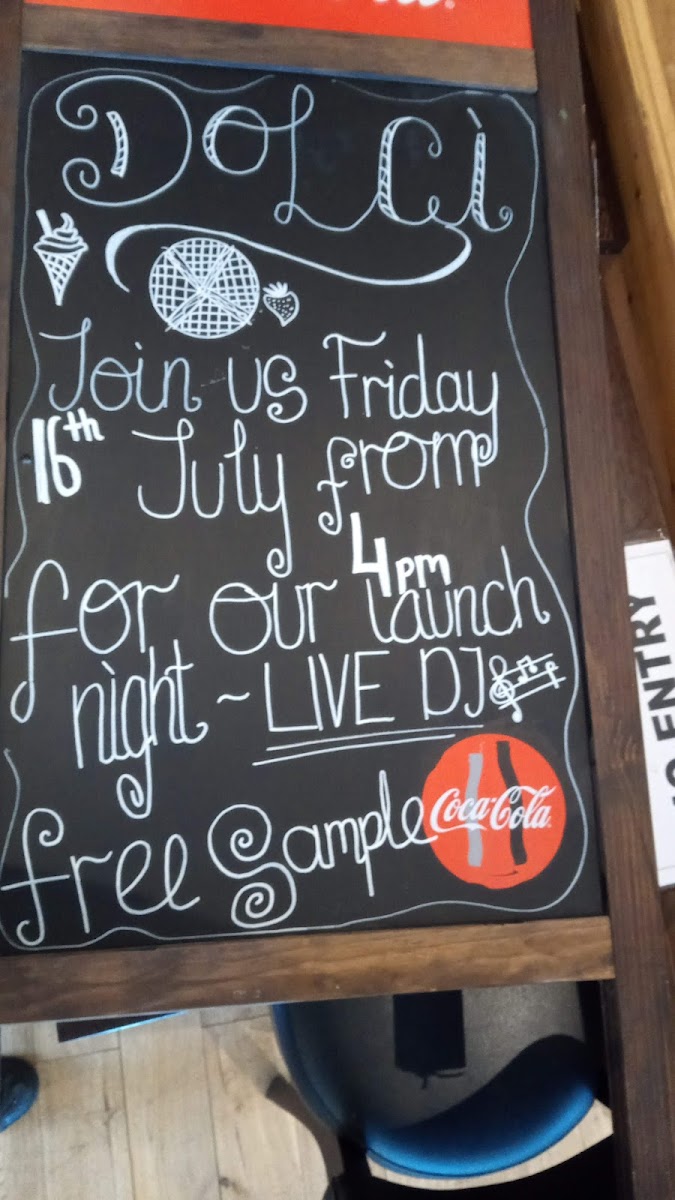 DOLCÌ
Join us Friday
16th July from
4pm
for our launch
night ~ LIVE DJ
free Sample
Coca-Cola
ENTRY